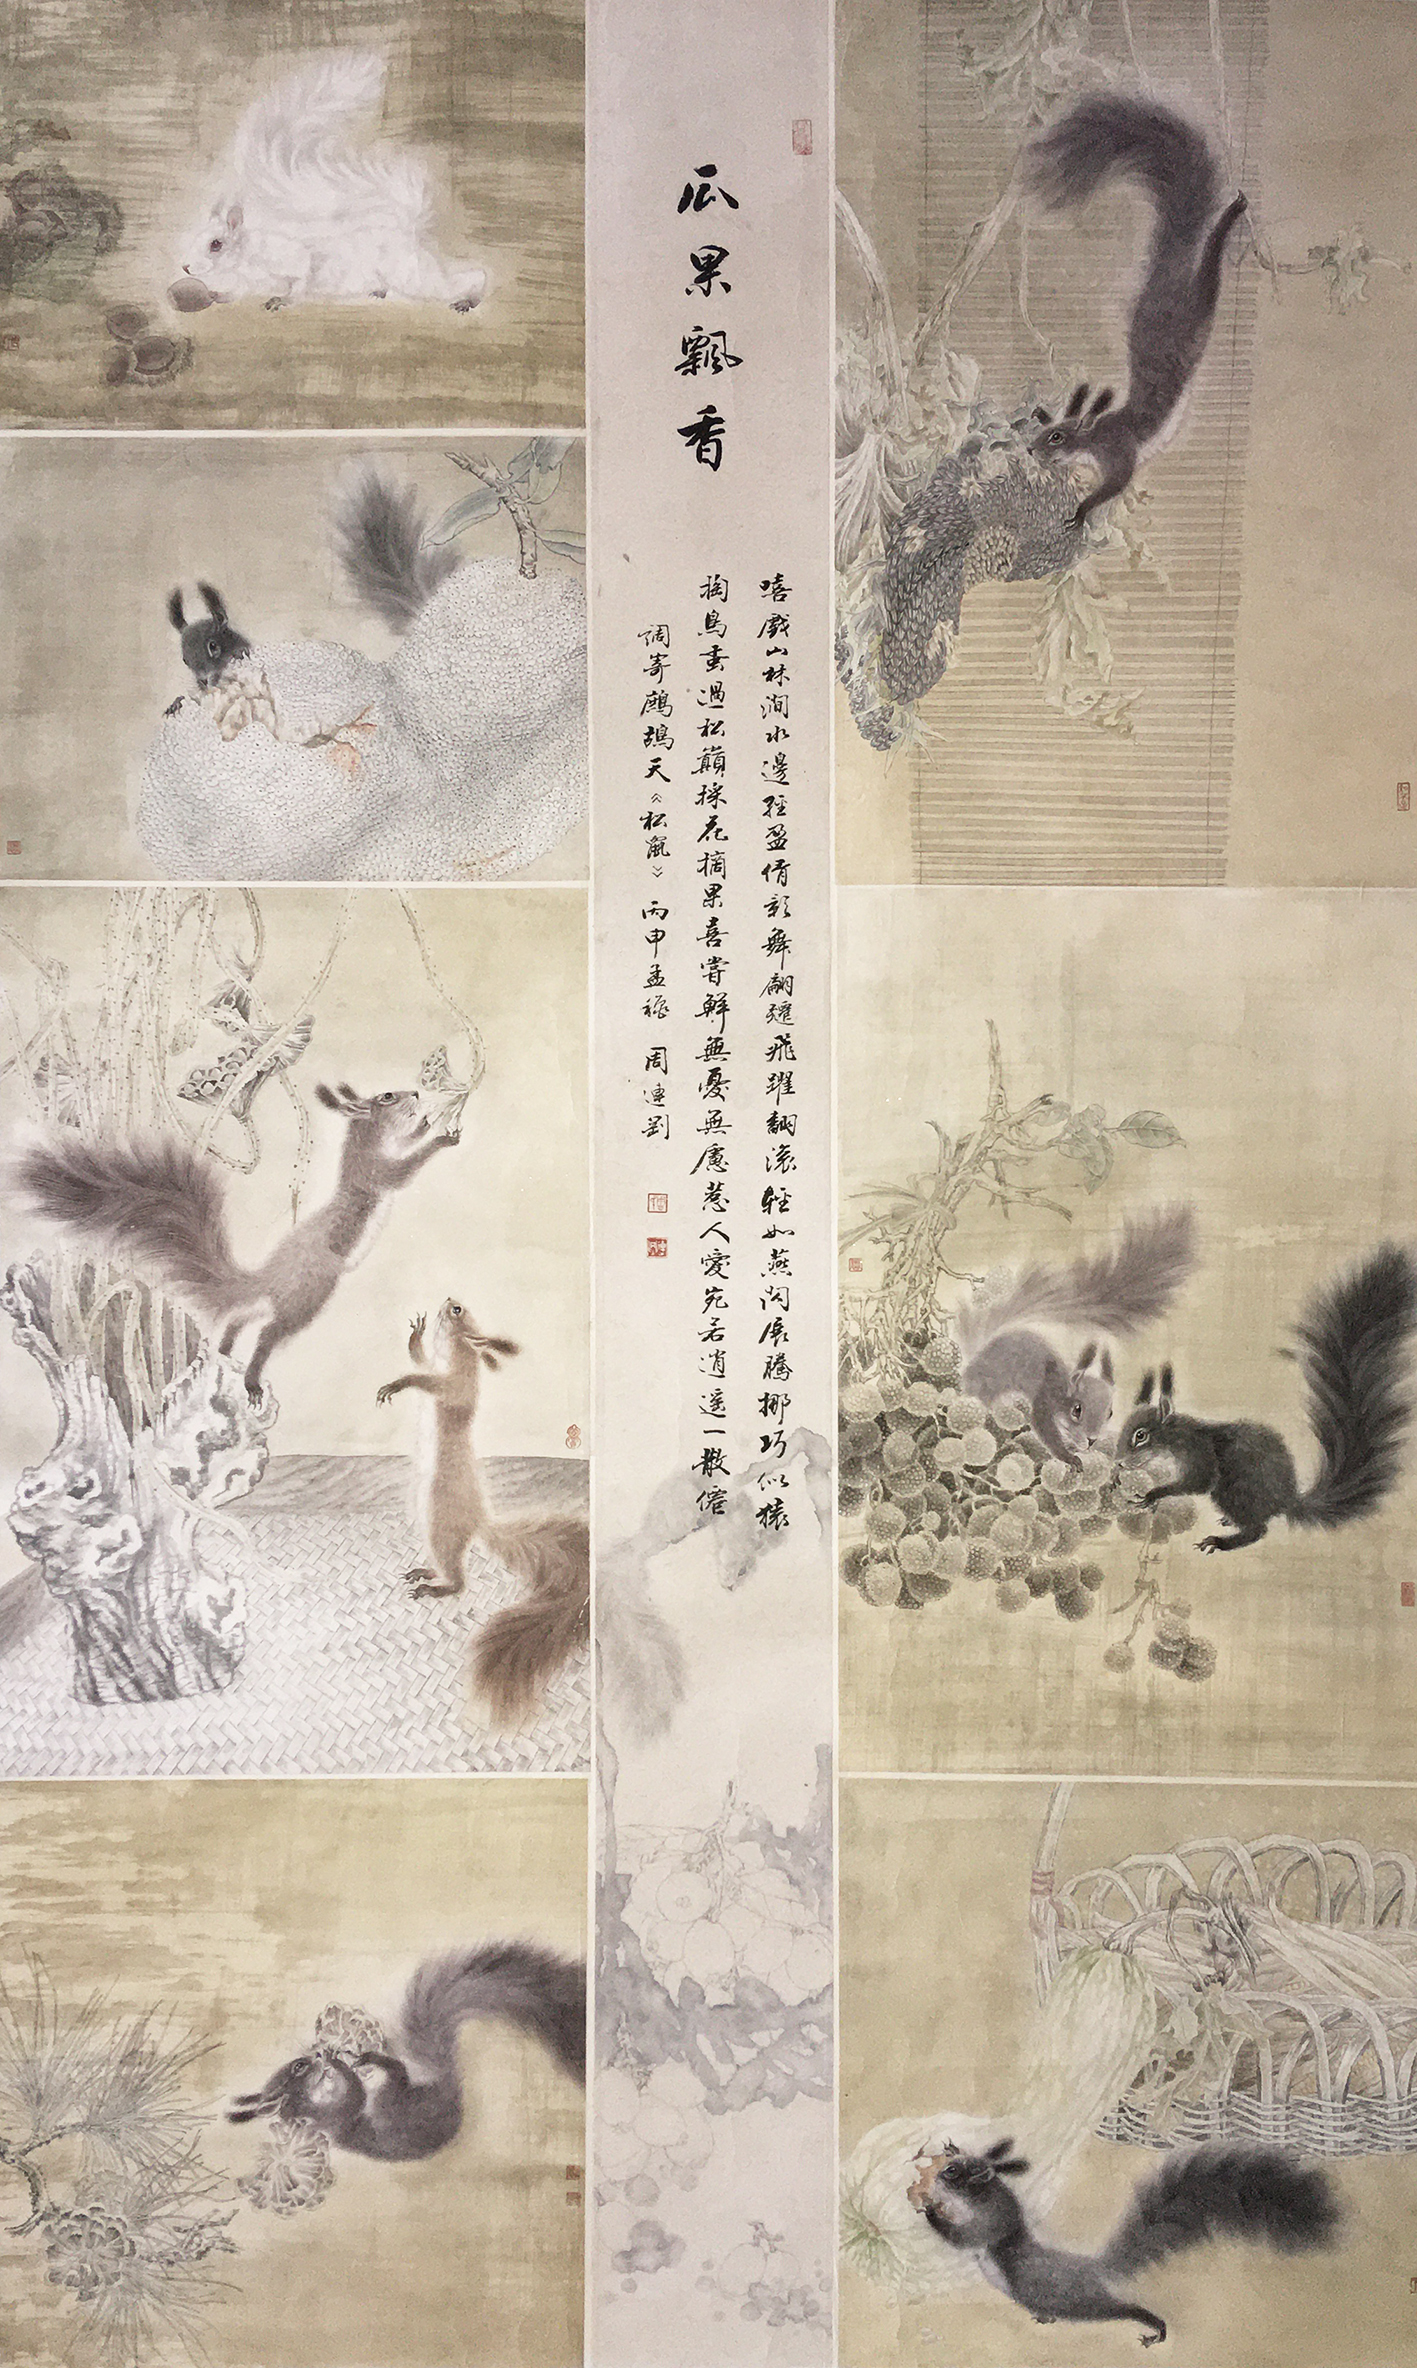 瓜果飄香
嘻戲山林澗水邊輕盈倩影舞翩躚飛躍翻滾輕如燕閃展騰挪巧似猿
掏鳥衷過松巔採花摘果喜嘗鮮無憂無慮惹人愛宛若逍遙一散僊
調寄鷓鴣天《松鼠》 丙申孟穐 周連剴